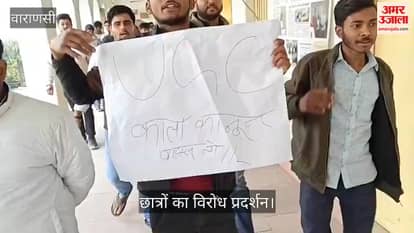 वाराणसी
अमर उजाला
amarujala.com
UGC
काला कानून
वापस लो
छात्रों का विरोध प्रदर्शन।